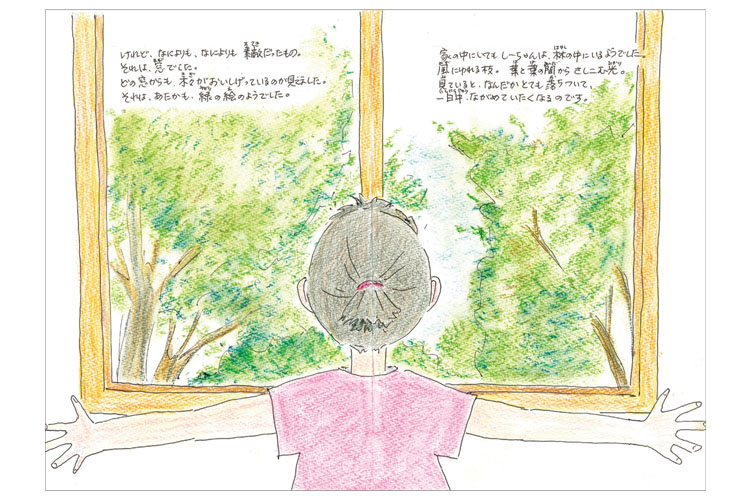 けれど、なによりも、なによりも 素敵だったもの。
それは、窓でした。
どの窓からも、木々がおいしげっているのが見えました。
それは、あたかも、緑の絵のようでした。
家の中にいても しーちゃんは、林の中にいるようでした。
風にゆれる枝。 葉と葉の間から さしこむ光。
見ていると、なんだかとても落ちついて、
一日中、ながめていたくなるのです。